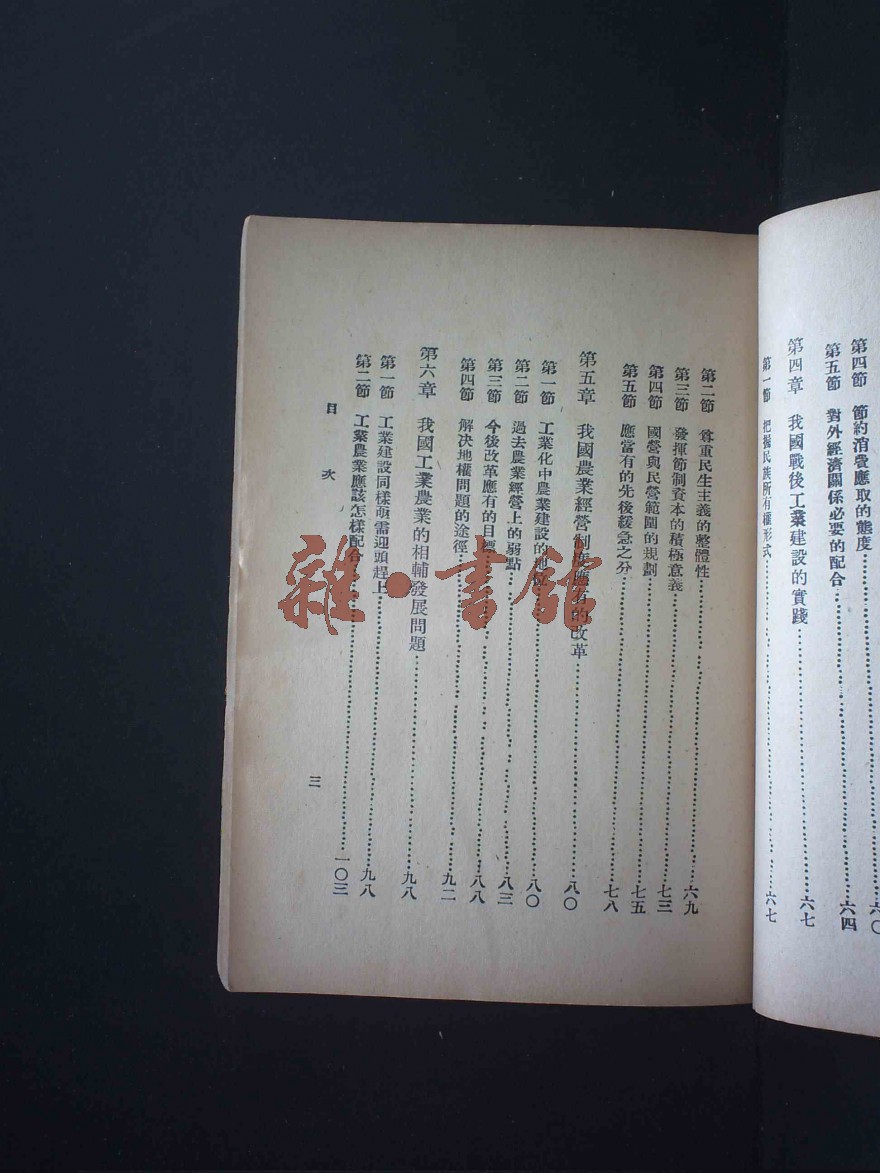 第四節 節約消費應取的態度……六〇
第五節 對外經濟關係必要的配合……六四
第四章 我國戰後工業建設的實踐……六七
第一節 把握民族所有權形式……六七
第二節 尊重民生主義的整體性……六九
第三節 發揮節制資本的積極意義……七三
第四節 國營與民營範圍的規劃……七五
第五節 應當有的先後緩急之分……七八
第五章 我國農業經營制度應有的改革……八〇
第一節 工業化中農業建設的地位……八〇
第二節 過去農業經營上的弱點……八三
第三節 今後改革應有的目標……八八
第四節 解決地權問題的途徑……九二
第六章 我國工業農業的相輔發展問題……九八
第一節 工業建設同樣亟需迎頭趕上……九八
第二節 工業農業應該怎樣配合……一〇三
目次
三
雜·書館